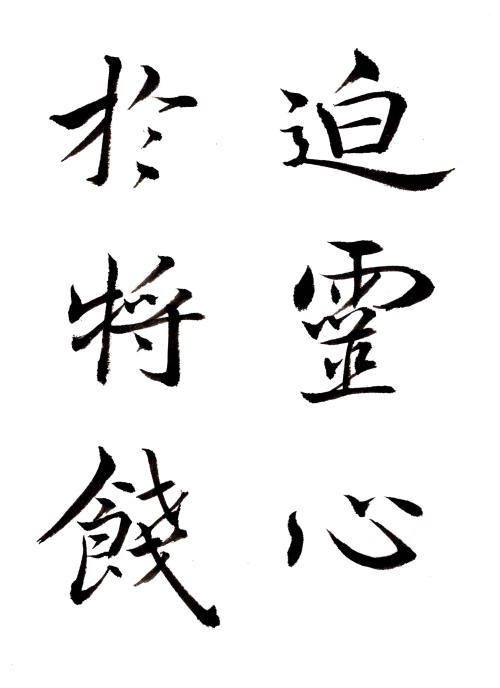 迫靈心
於將餞